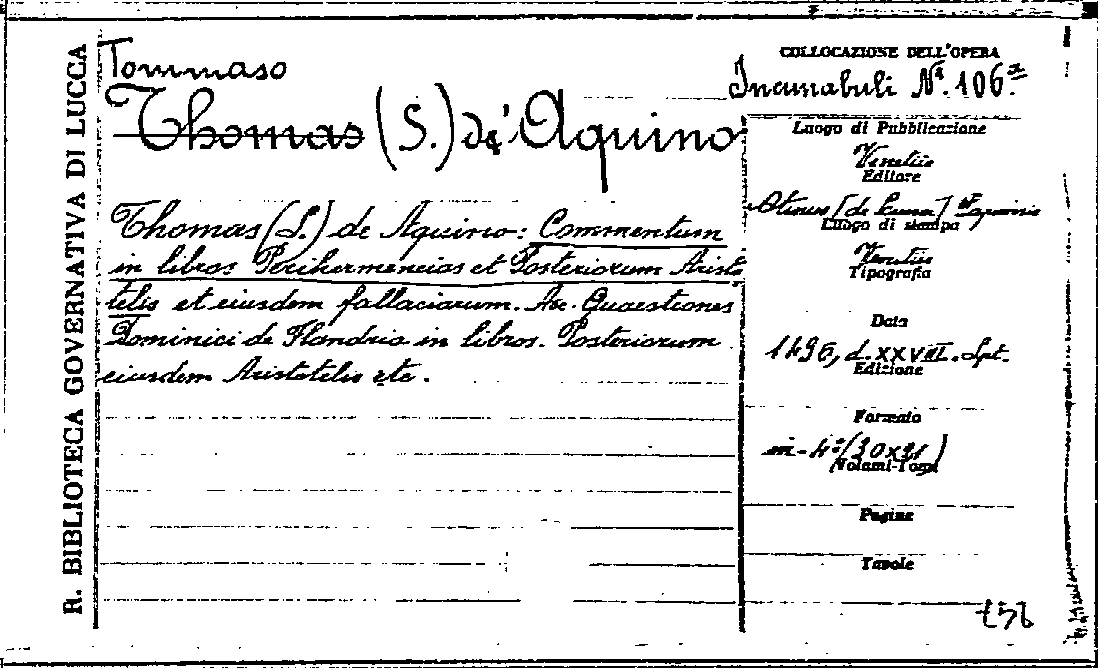 R. BIBLIOTECA GOVERNATIVA DI LUCCA
Tommaso
Thomas (S.) de' Aquino
Thomas (S.) de Aquino: Commentum
in libros Perihermeneias et Posteriorum Aristo
telis et eiusdem fallaciarum. Quaestiones
Dominici de Flandria in libros. Posteriorum
eiusdem Aristotelis etc.
COLLOCAZIONE DELL'OPERA
Incunabuli N.º 106.
Luogo di Pubblicazione
Venetiis
Editore
Otinus [de Luna] Papiensis
Luogo di stampa
Venetiis
Tipografia
Data
1496, d. XXVIII. Spt.
Edizione
Formato
in-4º (30x21)
Volumi-Tomi
Pagine
Tavole